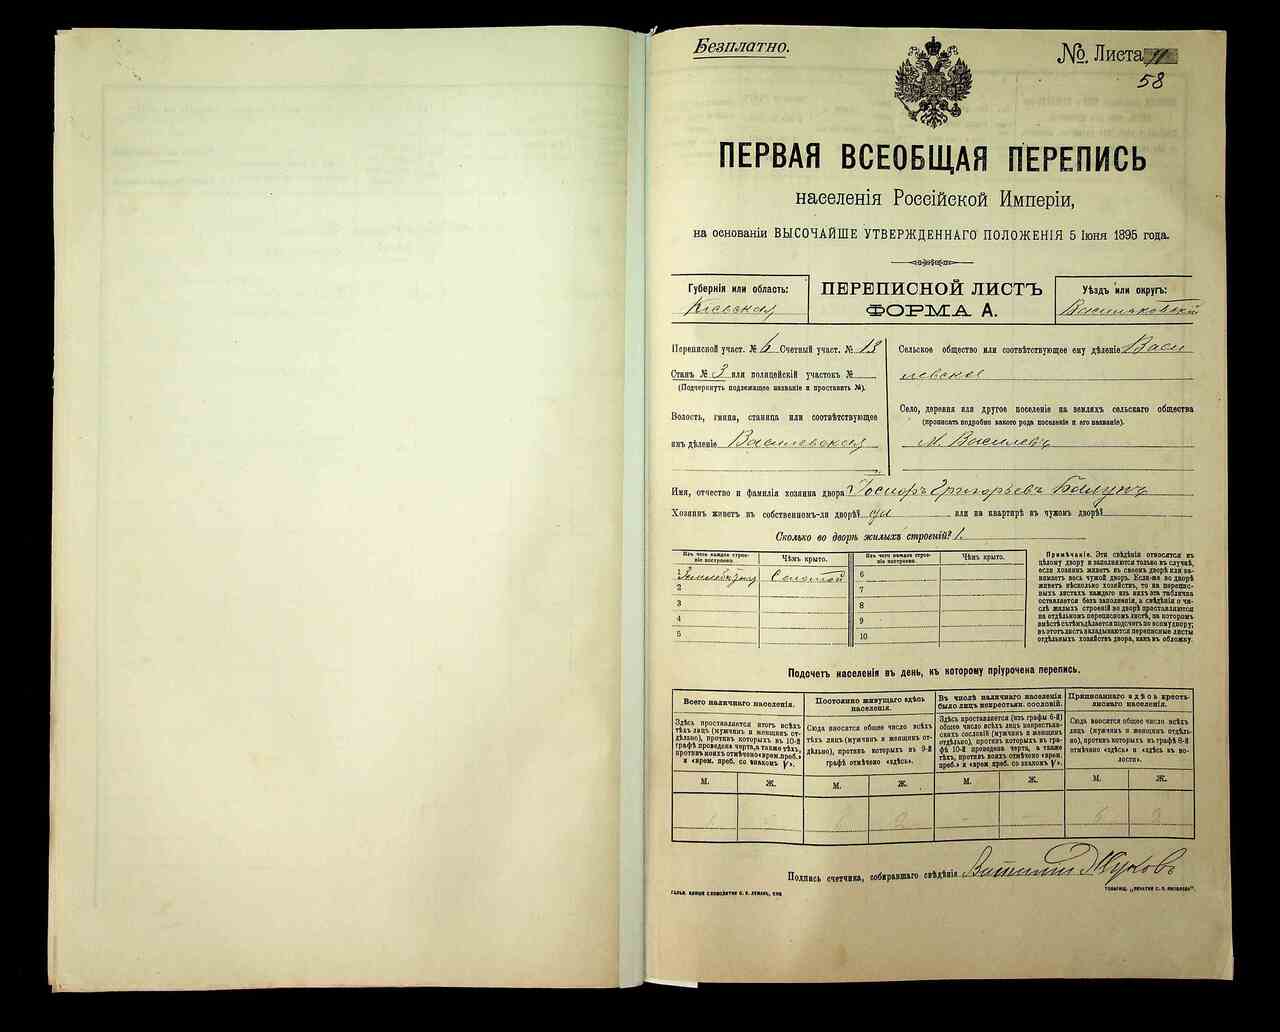 Безплатно.
№ Листа 11
58
ПЕРВАЯ ВСЕОБЩАЯ ПЕРЕПИСЬ
населенія Россійской Имперіи,
на основаніи ВЫСОЧАЙШЕ УТВЕРЖДЕННАГО ПОЛОЖЕНІЯ 5 Іюня 1895 года.
Губернія или область:
Кіевская
ПЕРЕПИСНОЙ ЛИСТЪ
ФОРМА А.
Уѣздъ или округъ:
Васильковскій
Переписной участ. № 6 Счетный участ. № 13
Станъ № 3 или полицейскій участокъ №
(Подчеркнуть подлежащее названіе и проставить №).
Волость, гмина, станица или соотвѣтствующее
имъ дѣленіе Василевская
Сельское общество или соотвѣтствующее ему дѣленіе Васи
левское
Село, деревня или другое поселеніе на земляхъ сельскаго общества
(прописать подробно какого рода поселеніе и его названіе).
М. Василевъ
Имя, отчество и фамилія хозяина двора Григорьевъ
Хозяинъ живетъ въ собственномъ-ли дворѣ? да или на квартирѣ въ чужомъ дворѣ?
Сколько во дворѣ жилыхъ строеній? 1.
Изъ чего каждое строеніе построено.
Чѣмъ крыто.
Изъ чего каждое строеніе построено.
Чѣмъ крыто.
1 Соломой
2
3
4
5
6
7
8
9
10
Примѣчаніе. Эти свѣдѣнія относятся къ
цѣлому двору и заполняются только въ случаѣ,
если хозяинъ живетъ въ своемъ дворѣ или занимаетъ
весь чужой дворъ. Если-же во дворѣ
живетъ нѣсколько хозяйствъ, то на переписныхъ
листахъ каждаго изъ нихъ эта табличка
оставляется безъ заполненія, а свѣдѣнія о числѣ
жилыхъ строеній во дворѣ проставляются
на отдѣльномъ переписномъ листѣ, на которомъ
вмѣстѣ съ тѣмъ дѣлается подсчетъ по всему двору;
въ этотъ листъ вкладываются переписные листы
отдѣльныхъ хозяйствъ двора, какъ въ обложку.
Подсчетъ населенія въ день, къ которому пріурочена перепись.
Всего наличнаго населенія.
Здѣсь проставляется итогъ всѣхъ
лицъ (мужчинъ и женщинъ отдѣльно),
противъ которыхъ въ 10-й
графѣ проведена черта, а также тѣхъ,
противъ коихъ отмѣчено «врем. преб.»
и «врем. преб. со знакомъ V».
Постоянно живущаго здѣсь
населенія.
Сюда вносятся общее число всѣхъ
тѣхъ лицъ (мужчинъ и женщинъ отдѣльно),
противъ которыхъ въ 9-й
графѣ отмѣчено «здѣсь».
Въ числѣ наличнаго населенія
было лицъ некрестьян. сословій.
Здѣсь проставляется (изъ графы 6-й)
общее число всѣхъ лицъ некрестьянскихъ
сословій (мужчинъ и женщинъ
отдѣльно), противъ которыхъ въ графѣ
10-й проведена черта, а также
тѣхъ, противъ коихъ отмѣчено «врем.
преб.» и «врем. преб. со знакомъ V».
Приписаннаго здѣсь крестьянскаго
населенія.
Сюда вносятся общее число всѣхъ
лицъ (мужчинъ и женщинъ отдѣльно),
противъ которыхъ въ графѣ 8-й
отмѣчено «здѣсь» и «здѣсь въ волости».
М. Ж. М. Ж. М. Ж. М. Ж.
Подпись счетчика, собиравшаго свѣдѣнія